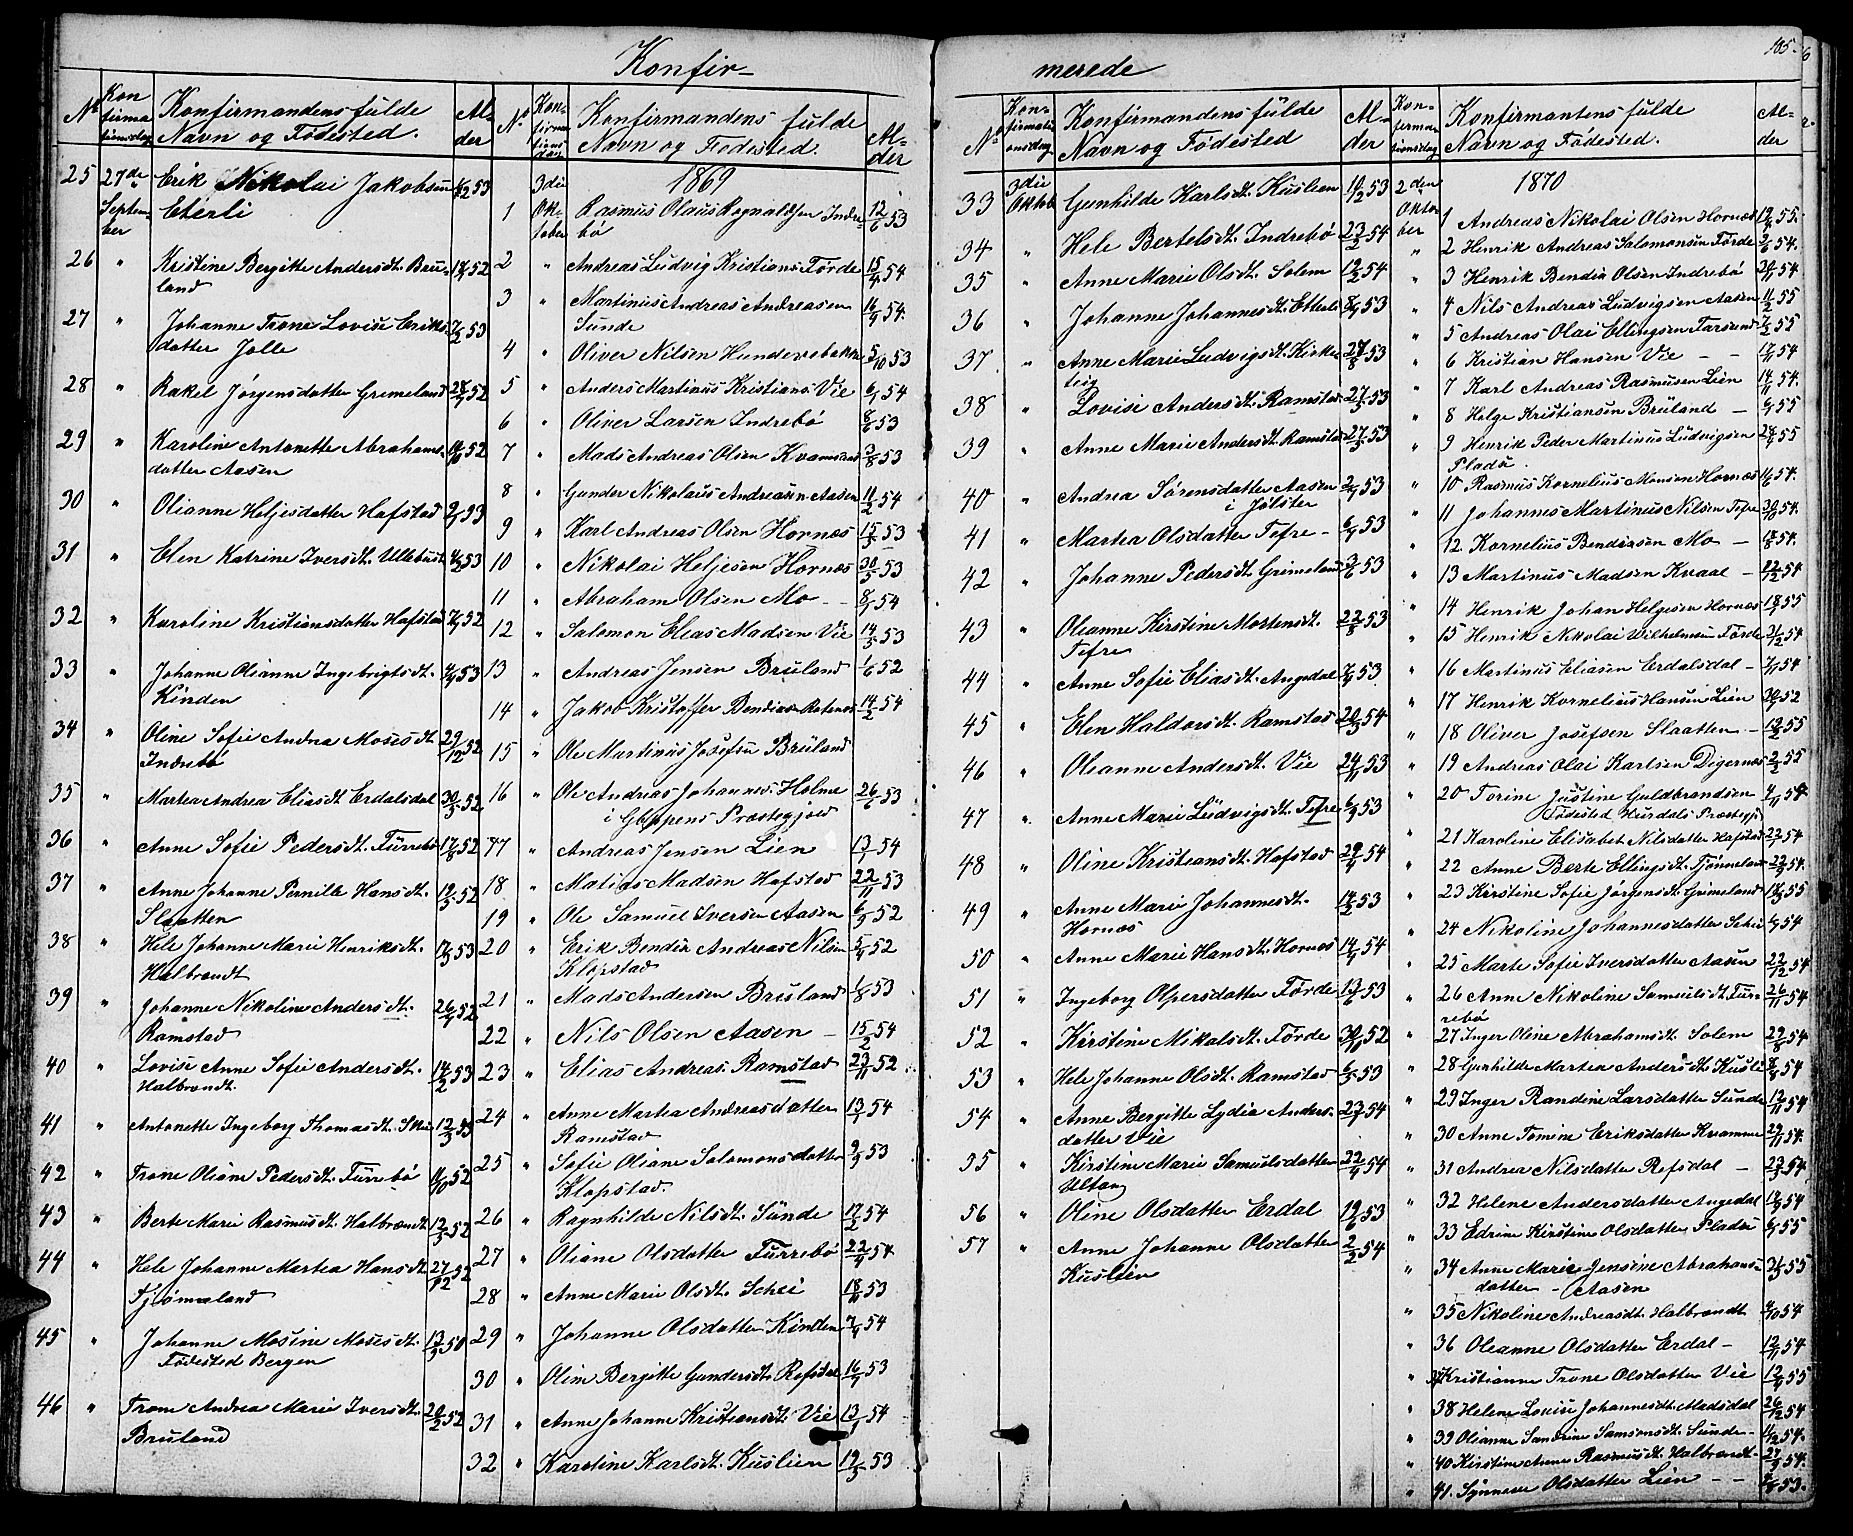 Konfir-
No
Kon
firma
tionsdag
Konfirmandens fulde
Navn og Födested.
Al-
der
25 27de Erik Nikolai Jakobsen 53
Septem- Eterli
ber
26 " Kristine Bergitte Andersdt. Bru- 52
land
27 " Johanne Trone Lovise Eriks- 53
datter Jolle
28 " Rakel Jørgensdatter Grimeland 52
29 " Karoline Antonette Abrahams- 52
datter Aasen
30 " Olianne Heljesdatter Hafstad 53
31 " Elen Katrine Iversdt. Ullebust 53
32 " Karoline Kristiansdatter Hafstad 52
33 " Johanne Olianne Ingebrigtsdt. 53
Kinden
34 " Oline Sofie Andrea Mosesdt. 29/12 52
Indrebö
35 " Martea Andrea Eliasdt. Erdalsdal 30/5 52
36 " Anne Sofie Pedersdt. Furrebö 17/8 52
37 " Anne Johanne Pernille Hansdt. 52
Slaatten
38 " Hele Johanne Marie Henriksdt. 53
Halbrændt
39 " Johanne Nikoline Andersdt. 52
Ramstad
40 " Lovise Anne Sofie Andersdt. 14/2 53
Halbrændt.
41 " Antonette Ingeborg Thomasdt. Skei 12/3
42 " Trone Oliane Pedersdt. Furrebö 52
43 " Berte Marie Rasmusdt. Halbrændt 12/3 52
44 " Hele Johanne Martea Hansdt. 27/12 52
Tjömeland
45 " Johanne Mosine Mosesdt. 13/3 50
Födested Bergen
46 " Trone Andrea Marie Iversdt. 20/2 52
Bruland
No
Kon-
firma-
tions
dag
Konfirmandens fulde
Navn og Födested.
Al-
der
3die 1869
1 Ok- Rasmus Olaus Rognaldsen Indre- 12/6 53
tober bö
2 " Andreas Ludvig Kristians. Förde 15/4 54
3 " Martinus Andreas Andreasen 16/4 54.
Sunde
4 " Oliver Nilsen Hundvebakke 5/10 53
5 " Anders Martinus Kristians. Vie 6/1 54
6 " Oliver Larsen Indrebö 53
7 " Mads Andreas Olsen Kvamsund 3/8 53
8 " Gunder Nikolaus Andreasen Aasen 11/2 54
9 " Karl Andreas Olsen Hornæs 15/5 53
10 " Nikolai Heljesen Hornæs 30/5 53
11 " Abraham Olsen Mo - 8/1 54
12 " Salomon Elias Madsen Vie 14/5 53
13 " Andreas Jensen Bruland 1/6 52
14 " Jakob Kristoffer Bendixen 14/2 54
15 " Ole Martinus Josefsen Bruland
16 " Ole Andreas Johannes. Holme 26/1 53
i Gloppens Præstegjeld
17 " Andreas Jensen Lien 13/1 54
18 " Matias Madsen Hafstad 22/11 53
19 " Ole Samuel Iversen Aasen 52
20 " Erik Bendix Andreas Nilsen 5/4 52
Klopstad
21 " Mads Andersen Bruland 53
22 " Nils Olsen Aasen - 15/2 54
23 " Elias Andreas. Ramstad 23/11 52
24 " Anne Martea Andreasdatter 13/1 54
Ramstad
25 " Sofie Oliane Salomonsdatter 53
Klopstad.
26 " Ragnhilde Nilsdt. Sunde 54
27 " Oliane Olsdatter Furrebö 22/4 54.
28 " Anne Marie Olsdt. Schei 53
29 " Johanne Olsdatter Kinden 54
30 " Oline Bergitte Gundersdt. Refsdal 53
31 " Anne Johanne Kristiansdt. Vie 13/1 54
32 " Karoline Karlsdt. Kuslien 19/3 53
merede
105.
No
Kon-
firmati-
onsdag
Konfirmandens fulde
Navn og Födested
Al-
der
33 3die Gunhilde Karlsdt. Kuslien 19/2 53
Oktob.
34 " Hele Bertelsdt. Indrebö 54
35 " Anne Marie Olsdt. Solem 54
36 " Johanne Johannesdt. 53
37 " Anne Marie Ludvigsdt. Kirke- 53
teig
38 " Lovise Andersdt. Ramstad 27/3 53
39 " Anne Marie Andersdt. Ramstad 27/3 53
40 " Andrea Sörensdatter Aasen 53
i Jölster
41 " Martea Olsdatter Tefre - 53
42 " Johanne Pedersdt. Grimeland 53
43 " Olianne Kirstine Mortensdt. 22/8 53
Tefre
44 " Anne Sofie Eliasdt. Angedal 53
45 " Elen Haldorsdt. Ramstad 54
46 " Olianne Andersdt. Vie 53
47 " Anne Marie Ludvigsdt. Tefre 53
48 " Oline Kristiansdt. Hafstad 54
49 " Anne Marie Johannesdt. 53
Hornæs
50 " Anne Marie Hansdt. Hornæs 54
51 " Ingeborg Olpersdatter Förde 53
52 " Kirstine Mikalsdt. Förde 30/11 52
53 " Hele Johanne Olsdt. Ramstad 53
54 " Anne Bergitte Lydia Anders- 54
datter Vie
55 " Kirstine Marie Samuelsdatter 22/4 54
Ultang
56 " Oline Olsdatter Erdal 53
57 " Anne Johanne Olsdatter 2/2 54
Kuslien
Kon-
firma-
tionsdag
Konfirmantens fulde
Navn og Födested.
Al-
der
2den 1870
Okto- 1 Andreas Nikolai Olsen Hornæs 55.
ber
" 2 Henrik Andreas Salomonsen Förde 54.
" 3 Henrik Bendix Olsen Indrebö 54.
" 4 Nils Andreas Ludvigsen Aasen 11/2 55
" 5 Andreas Olai Ellingsen Farsund 55
" 6 Kristian Hansen Vie - - 54
" 7 Karl Andreas Rasmusen Lien 14/11 54.
" 8 Helge Kristiansen Bruland - 55
" 9 Henrik Peder Martinus Ludvigsen 55
Pladse.
" 10 Rasmus Kornelius Monsen Hornæs 54.
" 11 Johannes Martinus Nilsen Tefre 30/10 54.
" 12 Kornelius Bendixsen Mo - 54.
" 13 Martinus Madsen Kvaal - 22/12 54
" 14 Henrik Johan Helgesen Hornæs 55
" 15 Henrik Nikolai Wilhelmsen Förde 54
" 16 Martinus Eliasen Erdalsdal - 54
" 17 Henrik Kornelius Hansen Lien 52
" 18 Oliver Josefsen Slaatten - 55
" 19 Andreas Olai Karlsen Digernæs 55
" 20 Torine Justine Guldbrandsen 54
(Födested Hurdals Præstegj.)
" 21 Karoline Elisabet Nilsdatter Hafstad 54
" 22 Anne Berte Ellingsdt. Tjömeland 54.
" 23 Kirstine Sofie Jörgensdt. Grimeland 55
" 24 Nikoline Johannesdatter Schei 54
" 25 Marte Sofie Iversdatter Aasen 22/12 54
" 26 Anne Nikoline Samuelsdt. Fur- 26/11 54
rebö
" 27 Inger Oline Abrahamsdt. Solem 54
" 28 Gunhilde Martea Andersdt. Kusli 54
" 29 Inger Randine Larsdatter Sunde 54
" 30 Anne Tomine Eriksdatter Kvamme 54.
" 31 Andrea Nilsdatter Refsdal - 54.
" 32 Helene Andersdatter Angedal 54
" 33 Edrine Kirstine Olsdatter Pladse 55
" 34 Anne Marie Jensine Abrahams- 55
datter - Aasen
" 35 Nikoline Andreasdt. Halbrændt 54
" 36 Olianne Olsdatter Erdal - 12/11 54
" 37 Kristianne Trone Olsdatter Vie 55
" 38 Helene Lovise Johannesdt. Madsdal 26/12 54
" 39 Olianne Sandrine Samsonsdt. Sunde - 54.
" 40 Kirstine Anne Rasmusdt. Halbrændt - 54.
" 41. Synneve Olsdatter Lien - - 53.